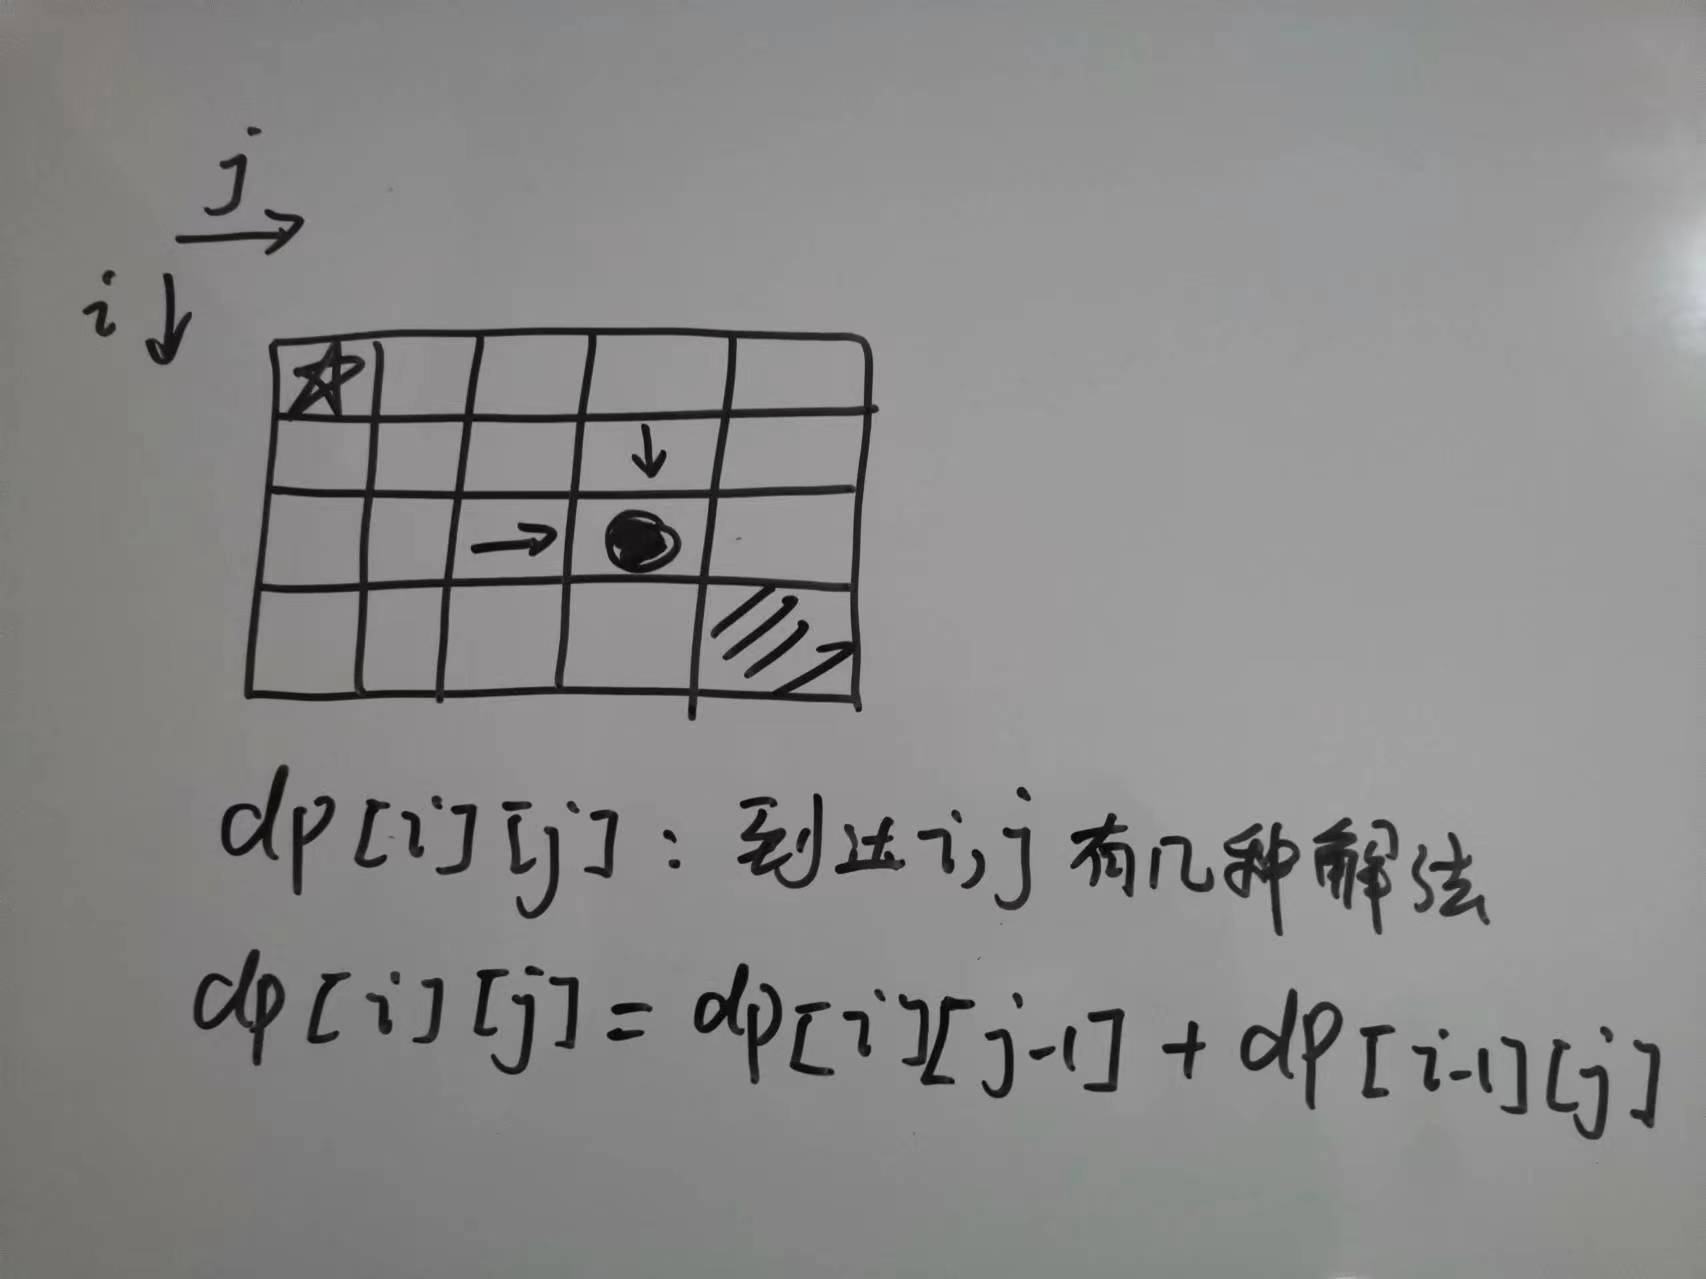 j
i
dp[i][j]：到达i,j有几种解法
dp[i][j]=dp[i][j-1]+dp[i-1][j]